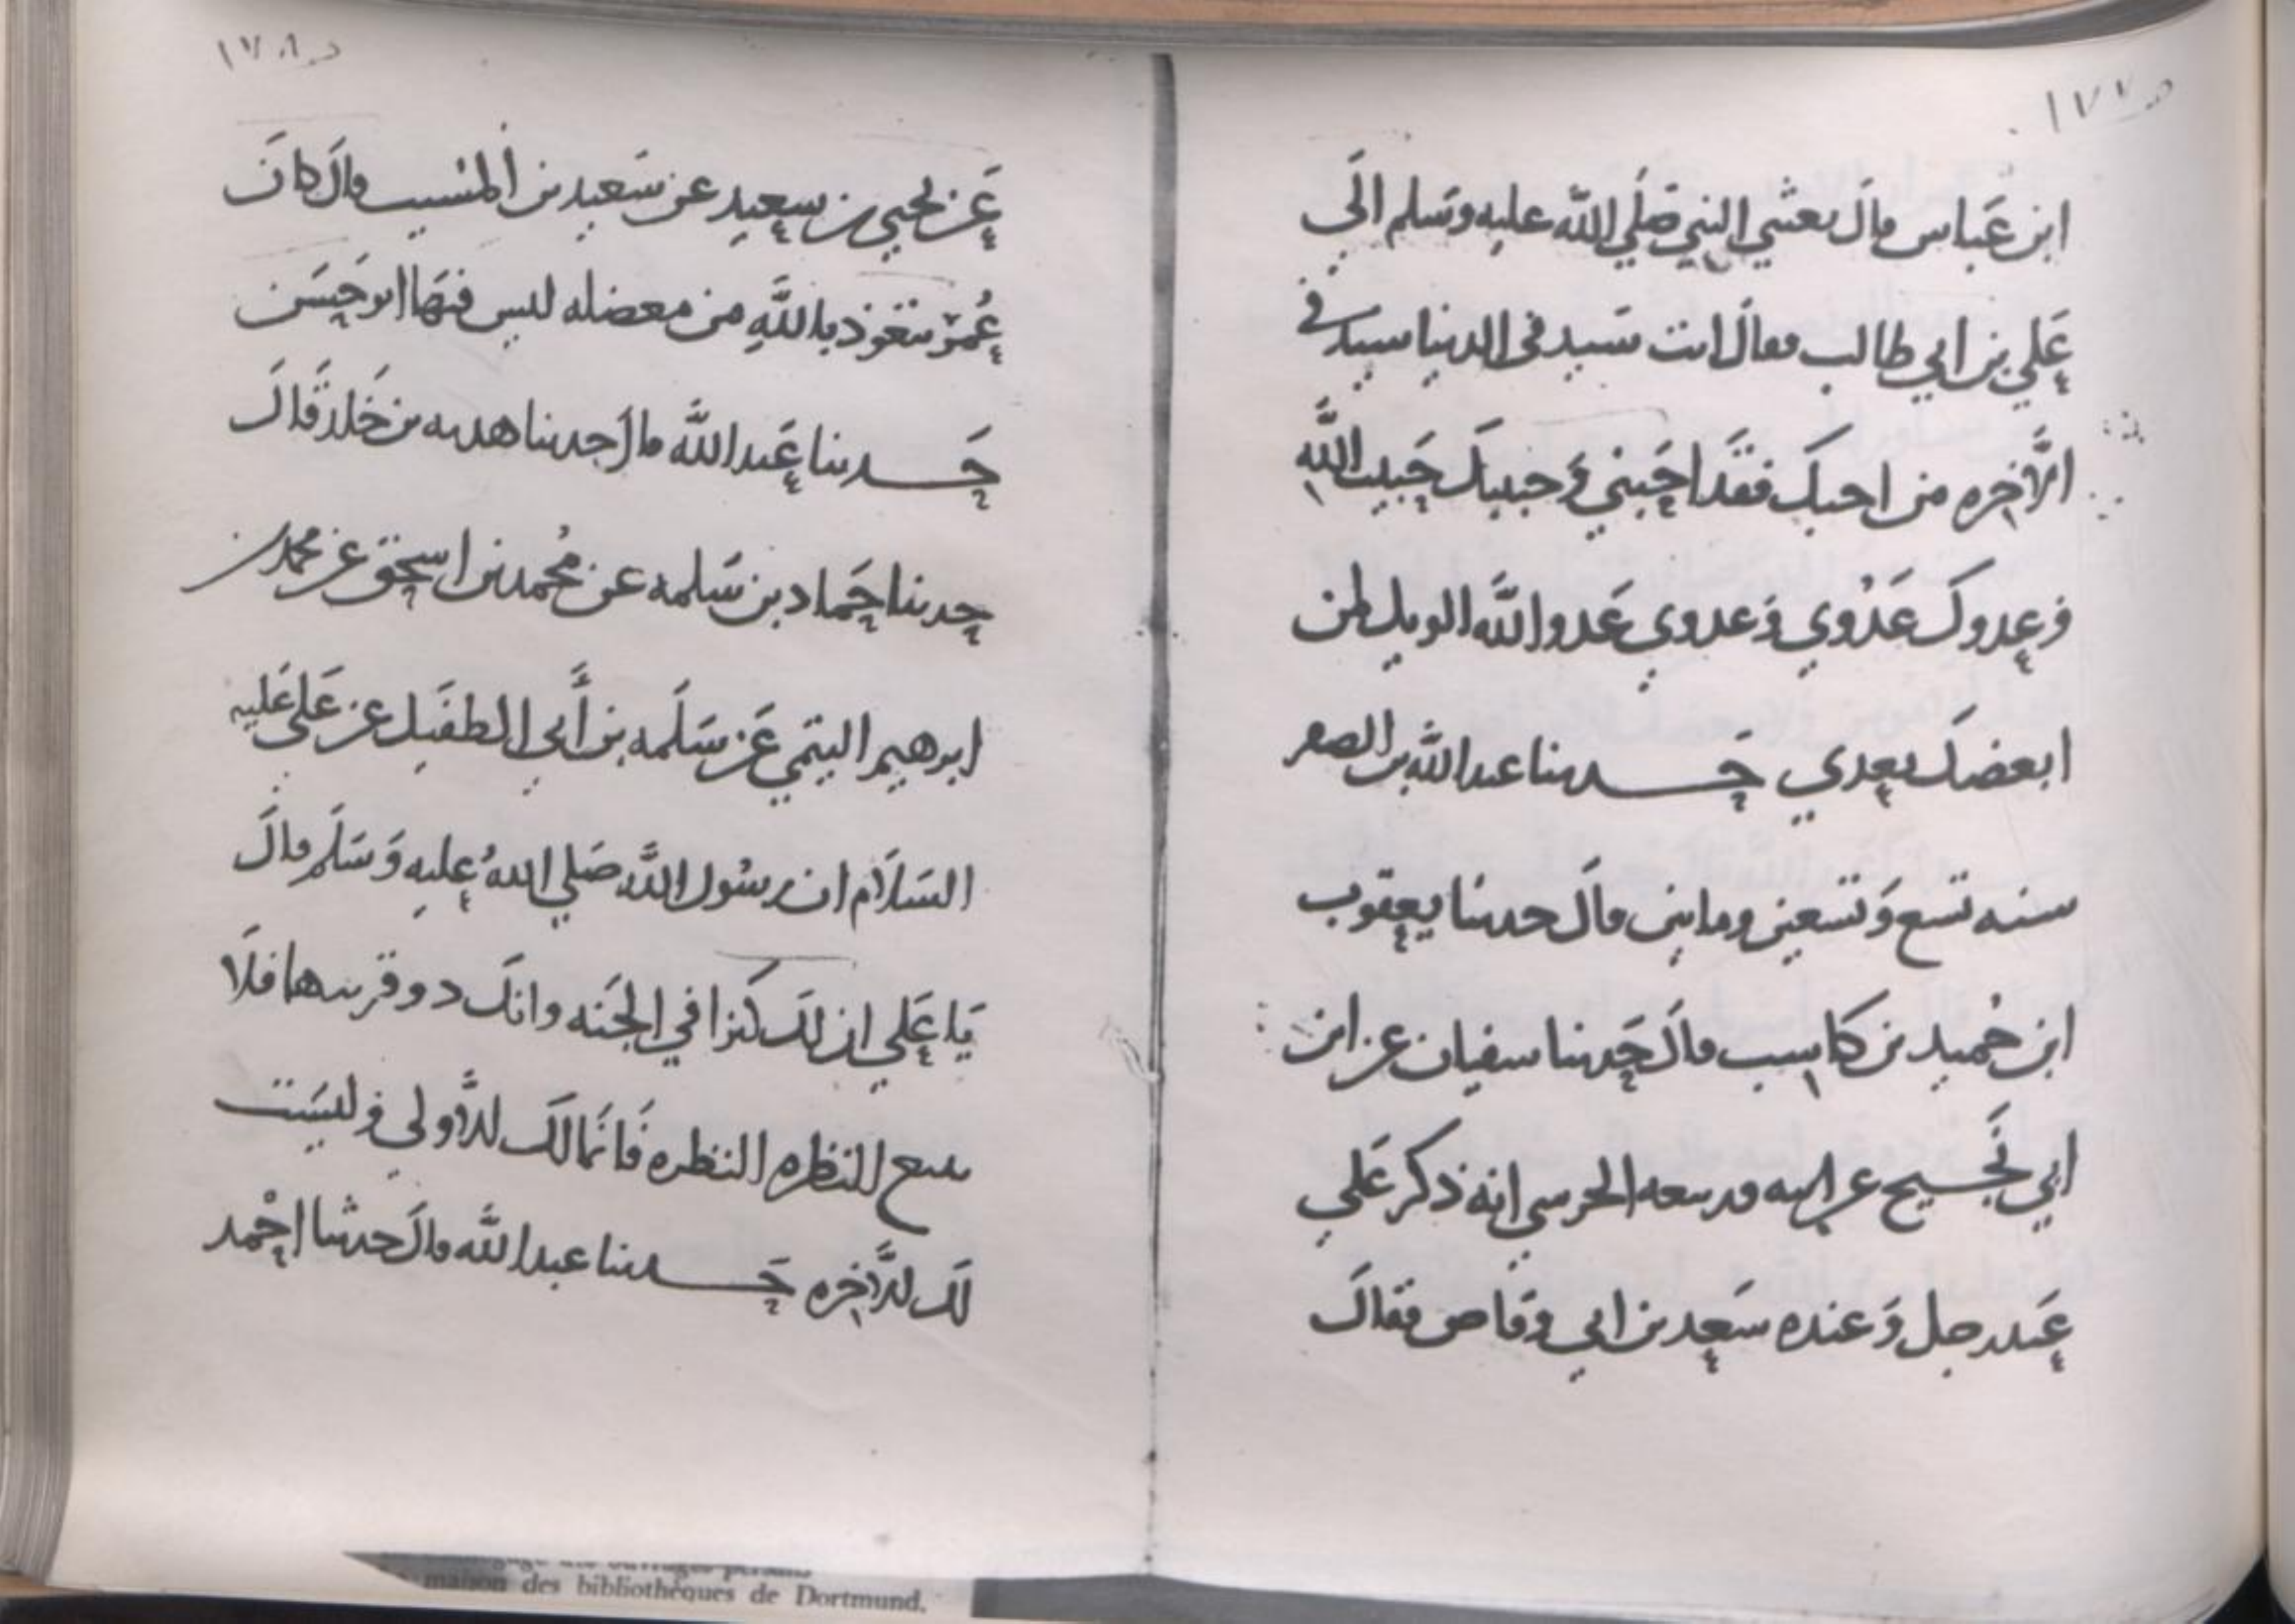 ١٧٧
ابن عباس قال بعثني النبي صلي الله عليه وسلم الى
علي بن ابي طالب فقال انت سيد في الدنيا سيد في
الآخره من احبك فقد احبني وحبيبك حبيب الله
وعدوك عدوي وعدوي عدو الله الويل لمن
ابغضك بعدي حدثنا عبد الله بن الصقر
سنه تسع وتسعين ومايتي قال حدثنا يعقوب
ابن حميد بن كاسب قال حدثنا سفيان عن ابن
ابي نجيح عن ابيه وربيعه الجرسي انه ذكر علي
عند رجل وعنده سعد بن ابي وقاص فقال
١٧٨
عن يحيي بن سعيد عن سعيد بن المسيب قال كان
عمر يتعوذ بالله من معضله ليس فيها ابو حسن
حدثنا عبد الله قال حدثنا هدبه بن خلد قال
حدثنا حماد بن سلمه عن محمد بن اسحق عن محمد بن
ابرهيم التيمي عن سلمه بن أبي الطفيل عن علي عليه
السلام ان رسول الله صلي الله عليه وسلم قال
يا علي ان لك كنزا في الجنه وانك ذو قرنيها فلا
تتبع النظره النظره فانما لك الأولي وليست
لك الآخره حدثنا عبد الله قال حدثنا احمد
maison des bibliothèques de Dortmund.